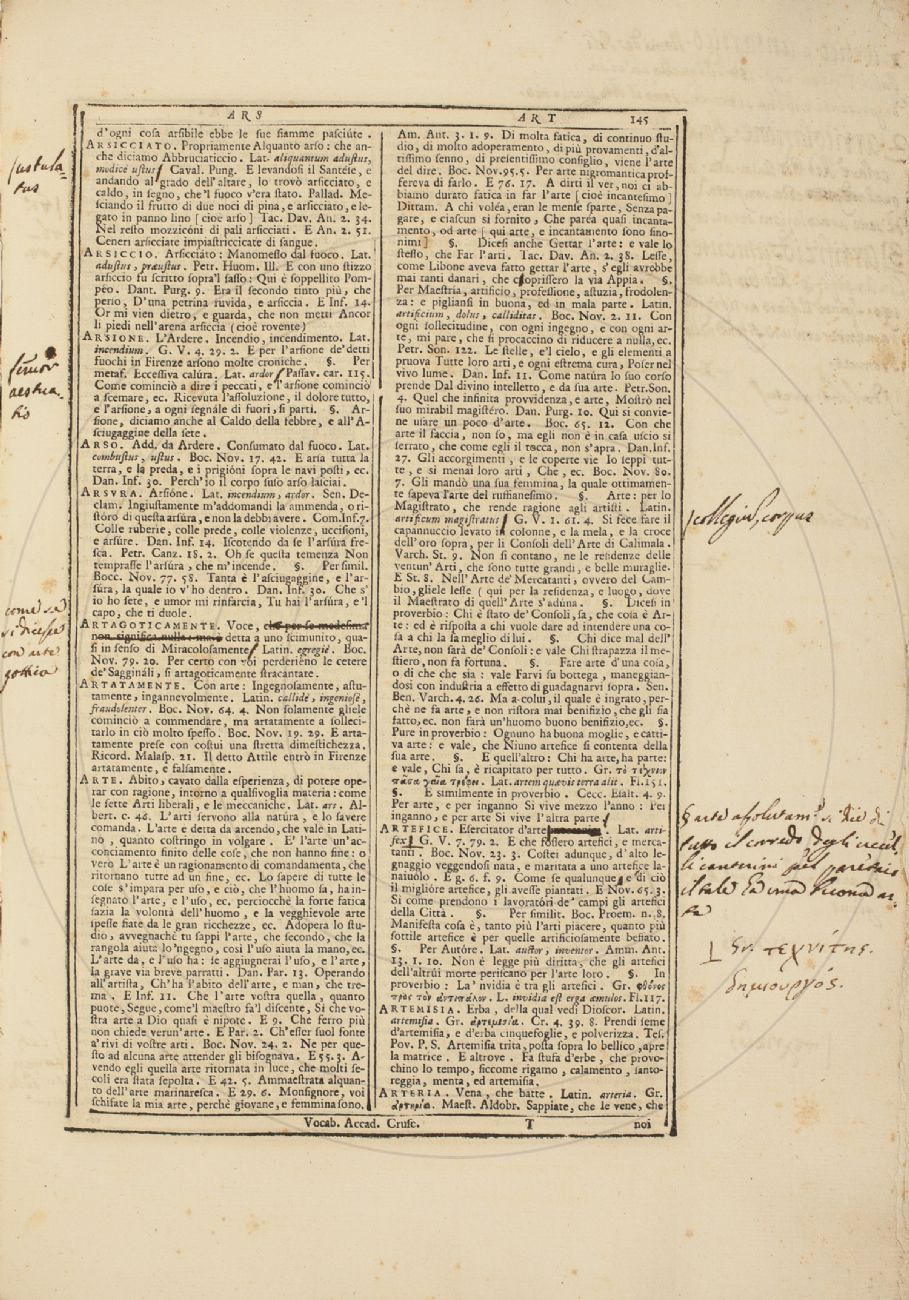 ARS
ART 145
d'ogni cosa arsibile ebbe le sue fiamme pasciúte .
ARSICCIATO. Propriamente Alquanto arso : che an-
che diciamo Abbruciaticcio . Lat. aliquantum adustus,
modicè ustus Caval. Pung. E levandosi il Santése, e
andando al grado dell'altare, lo trovò arsicciato, e
caldo, in segno, che 'l fuoco v'era stato. Pallad. Me-
sciando il frutto di due noci di pina, e arsicciato, e le-
gato in panno lino [ cioè arso ] Tac. Dav. An. 2. 34.
Nel resto mozzicóni di pali arsicciati . E An. 2. 51.
Ceneri arsicciate impiastriccicate di sangue.
ARSICCIO. Arsicciáto : Manomesso dal fuoco. Lat.
adustus, præustus. Petr. Huom. Ill. E con uno stizzo
arsiccio fu scritto sopra'l sasso: Quì è soppellito Pom-
péo. Dant. Purg. 9. Era il secondo tinto più, che
perso, D'una petrina ruvida, e arsiccia. E Inf. 14.
Or mi vien dietro, e guarda, che non metti Ancor
li piedi nell'arena arsiccia (cioè rovente)
ARSIONE. L'Ardere. Incendio, incendimento. Lat.
incendium. G. V. 4. 29. 2. E per l'arsione de'detti
fuochi in Firenze arsono molte croniche. §. Per
metaf. Eccessiva calúra. Lat. ardor Passav. car. 115.
Come cominciò a dire i peccati, e l'arsione cominciò
a scemare, ec. Ricevuta l'assoluzione, il dolore tutto,
e l'arsione, a ogni segnále di fuori, si parti. §. Ar-
sione, diciamo anche al Caldo della febbre, e all'A-
sciugaggine della sete.
ARSO. Add. da Ardere. Consumato dal fuoco. Lat.
combustus, ustus. Boc. Nov. 17. 42. E arsa tutta la
terra, e la preda, e i prigióni sopra le navi posti, ec.
Dan. Inf. 30. Perch'io il corpo suso arso lasciai.
ARSVRA. Arsióne. Lat. incendium, ardor. Sen. De-
clam. Ingiustamente m'addomandi la ammenda, o ri-
stóro di questa arsúra, e non la debbi avere. Com. Inf. 7.
Colle ruberie, colle prede, colle violenze, uccisioni,
e arsúre. Dan. Inf. 14. Iscotendo da se l'arsúra fre-
sca. Petr. Canz. 18. 2. Oh se questa temenza Non
temprasse l'arsúra, che m'incende. §. Per simil.
Bocc. Nov. 77. 58. Tanta è l'asciugaggine, e l'ar-
súra, la quale io v'ho dentro. Dan. Inf. 30. Che s'
io ho sete, e umor mi rinfarcia, Tu hai l'arsúra, e 'l
capo, che ti duole.
ARTAGOTICAMENTE. Voce, che per se medesima
non significa nulla: ma è detta a uno scimunito, qua-
si in senso di Miracolosamente Latin. egregiè. Boc.
Nov. 79. 20. Per certo con voi perderieno le cetere
de'Sagginali, sì artagoticamente stracantate.
ARTATAMENTE. Con arte: Ingegnosamente, astu-
tamente, ingannevolmente. Latin. callidè, ingeniosè,
fraudolenter. Boc. Nov. 64. 4. Non solamente gliele
cominciò a commendare, ma artatamente a solleci-
tarlo in ciò molto spesso. Boc. Nov. 19. 29. E arta-
tamente prese con costui una stretta dimestichezza.
Ricord. Malasp. 21. Il detto Attile entrò in Firenze
artatamente, e falsamente.
ARTE. Abito, cavato dalla esperienza, di potere ope-
rar con ragione, intorno a qualsivoglia materia: come
le sette Arti liberali, e le meccaniche. Lat. ars. Al-
bert. c. 46. L'arti servono alla natúra, e lo savere
comanda. L'arte è detta da arcendo, che vale in Lati-
no, quanto costringo in volgare. E' l'arte un'ac-
conciamento finito delle cose, che non hanno fine: o
vero L'arte è un ragionamento di comandamenta, che
ritornano tutte ad un fine, ec. Lo sapere di tutte le
cose s'impara per uso, e ciò, che l'huomo sa, ha in-
segnato l'arte, e l'uso, ec. perciocchè la forte fatica
sazia la volontà dell'huomo, e la vegghievole arte
spesse fiate da le gran ricchezze, ec. Adopera lo stu-
dio, avvegnachè tu sappi l'arte, che secondo, che la
rangola aiuta lo'ngegno, così l'uso aiuta la mano, ec.
L'arte dà, e l'uso ha: se aggiugnerai l'uso, e l'arte,
la grave via breve parratti. Dan. Par. 13. Operando
all'artista, Ch'ha l'abito dell'arte, e man, che tre-
ma. E Inf. 11. Che l'arte vostra quella, quanto
puote, Segue, come'l maestro fa'l discente, Sì che vo-
stra arte a Dio quasi è nipote. E 9. Che ferro più
non chiede verun'arte. E Par. 2. Ch'esser suol fonte
a'rivi di vostre arti. Boc. Nov. 24. 2. Ne per que-
sto ad alcuna arte attender gli bisognava. E 55. 3. A-
vendo egli quella arte ritornata in luce, che molti se-
coli era stata sepolta. E 42. 5. Ammaestrata alquan-
to dell'arte marinaresca. E 29. 6. Monsignore, voi
schifate la mia arte, perchè giovane, e femmina sono.
Am. Ant. 3. 1. 9. Di molta fatica, di continuo stu-
dio, di molto adoperamento, di più provamenti, d'al-
tissimo senno, di presentissimo consiglio, viene l'arte
del dire. Boc. Nov. 95. 5. Per arte nigromantica prof-
fereva di farlo. E 76. 17. A dirti il ver, noi ci ab-
biamo durato fatica in far l'arte [cioè incantesimo]
Dittam. A chi voléa, eran le mense sparte, Senza pa-
gare, e ciascun si fornito, Che paréa quasi incanta-
mento, od arte [ qui arte, e incantamento sono sino-
nimi] §. Dicesi anche Gettar l'arte: e vale lo
stesso, che Far l'arti. Tac. Dav. An. 2. 38. Lesse,
come Libone aveva fatto gettar l'arte, s'egli avrebbe
mai tanti danari, che coprissero la via Appia. §.
Per Maestria, artificio, professione, astuzia, frodolen-
za: e pigliansi in buona, ed in mala parte. Latin.
artificium, dolus, calliditas. Boc. Nov. 2. 11. Con
ogni sollecitudine, con ogni ingegno, e con ogni ar-
te, mi pare, che si procaccino di riducere a nulla, ec.
Petr. Son. 122. Le stelle, e'l cielo, e gli elementi a
pruova Tutte loro arti, e ogni estrema cura, Poser nel
vivo lume. Dan. Inf. 11. Come natúra lo suo corso
prende Dal divino intelletto, e da sua arte. Petr. Son.
4. Quel che infinita provvidenza, e arte, Mostrò nel
suo mirabil magistéro. Dan. Purg. 10. Qui si convie-
ne usare un poco d'arte. Boc. 65. 12. Con che
arte il faccia, non so, ma egli non è in casa uscio sì
serrato, che come egli il tocca, non s'apra. Dan. Inf.
27. Gli accorgimenti, e le coperte vie Io seppi tut-
te, e sì menai loro arti, Che, ec. Boc. Nov. 80.
7. Gli mandò una sua femmina, la quale ottimamen-
te sapeva l'arte del ruffianesimo. §. Arte: per lo
Magistrato, che rende ragione agli artisti. Latin.
artificum magistratus G. V. 1. 61. 4. Si fece fare il
capannuccio levato in colonne, e la mela, e la croce
dell'oro sopra, per li Consoli dell'Arte di Calimala.
Varch. St. 9. Non si contano, ne le residenze delle
ventun' Arti, che sono tutte grandi, e belle muraglie.
E St. 8. Nell'Arte de' Mercatanti, ovvero del Cam-
bio, gliele lesse ( qui per la residenza, e luogo, dove
il Maestrato di quell'Arte s'adúna. §. Dicesi in
proverbio: Chi è stato de' Consoli, sa, che cosa è Ar-
te: ed è risposta a chi vuole dare ad intendere una co-
sa a chi la sa meglio di lui. §. Chi dice mal dell'
Arte, non sarà de' Consoli: e vale Chi strapazza il me-
stiero, non fa fortuna. §. Fare arte d'una cosa,
o di che che sia: vale Farvi su bottega, maneggian-
dosi con industria a effetto di guadagnarvi sopra. Sen.
Ben. Varch. 4. 26. Ma a colui, il quale è ingrato, per-
chè ne fa arte, e non ristora mai benifizio, che gli sia
fatto, ec. non farà un'huomo buono benifizio, ec. §.
Pure in proverbio: Ognuno ha buona moglie, e catti-
va arte: e vale, che Niuno artefice si contenta della
sua arte. §. E quell'altro: Chi ha arte, ha parte:
e vale, Chi sa, è ricapitato per tutto. Gr. τὸ τέχνιον
πᾶσα γαῖα τρέφει. Lat. artem quævis terra alit. Fl. 151.
§. E similmente in proverbio. Cecc. Esalt. 4. 9.
Per arte, e per inganno Si vive mezzo l'anno: Per
inganno, e per arte Si vive l'altra parte
ARTEFICE. Esercitator d'arte . Lat. arti-
fex G. V. 7. 79. 2. E che fossero artefici, e merca-
tanti. Boc. Nov. 23. 3. Costei adunque, d'alto le-
gnaggio veggendosi nata, e maritata a uno artefice la-
naiuólo. E g. 6. f. 9. Come se qualunque e di ciò
il miglióre artefice, gli avesse piantati. E Nov. 65. 3.
Sì come prendono i lavoratóri de' campi gli artefici
della Città. §. Per similit. Boc. Proem. n. 8.
Manifesta cosa è, tanto più l'arti piacere, quanto più
sottile artefice è per quelle artificiosamente beffato.
§. Per Autóre. Lat. auctor, inventor. Amm. Ant.
13. 1. 10. Non è legge più diritta, che gli artefici
dell'altrúi morte periscano per l'arte loro. §. In
proverbio: La 'nvidia è tra gli artefici. Gr. φθόνος
πρὸς τὸν ἀντιπάλον. L. invidia est erga æmulos. Fl. 117.
ARTEMISIA. Erba, della qual vedi Dioscor. Latin.
artemisia. Gr. ἀρτεμισία. Cr. 4. 39. 8. Prendi seme
d'artemisia, e d'erba cinquefoglie, e polverizza. Tes.
Pov. P. S. Artemisia trita, posta sopra lo bellico, apre
la matrice. E altrove. Fa stufa d'erbe, che provo-
chino lo tempo, siccome rigamo, calamento, santo-
reggia, menta, ed artemisia.
ARTERIA. Vena, che batte. Latin. arteria. Gr.
ἀρτηρία. Maest. Aldobr. Sappiate, che le vene, che
Vocab. Accad. Crusc. T noi
justula-
tus
fervor
aestua-
tio
come se
si dicesse
con arte
gothica
collegium, corpus
Gr. τεχνίτης.
δημιουργός.